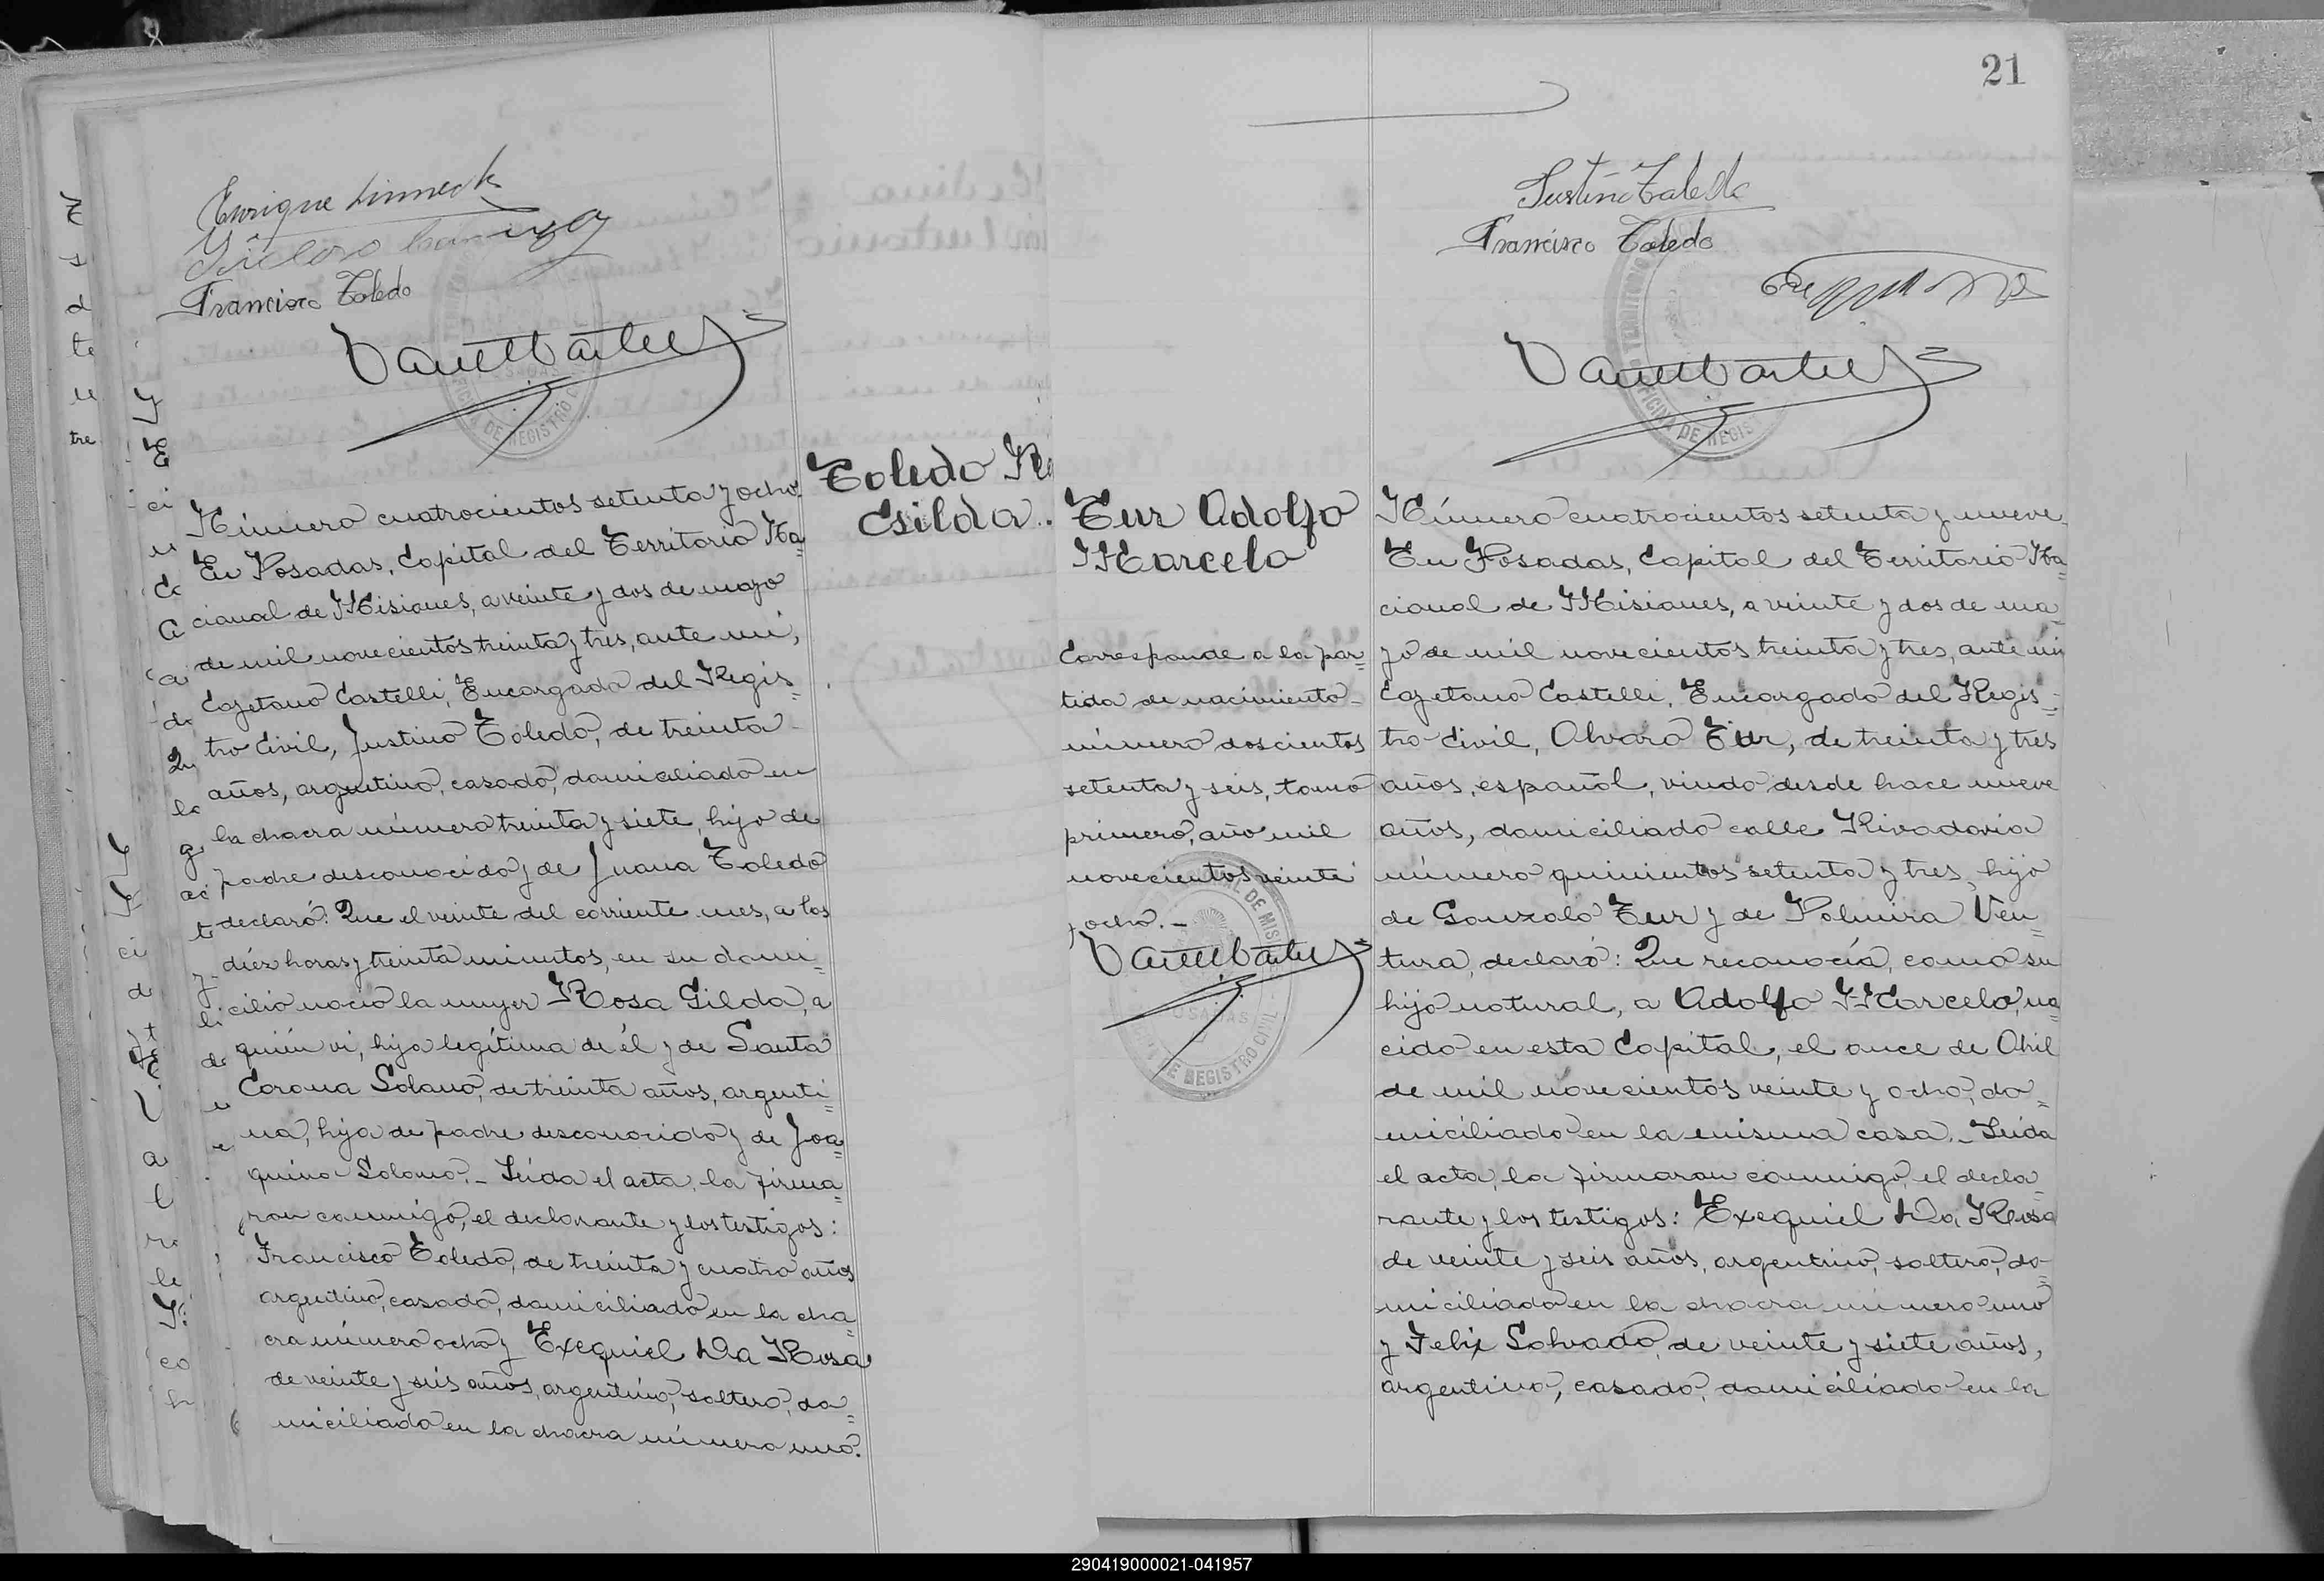 Enrique Linneck
Francisco Toledo
Toledo R
Gilda.
Número cuatrocientos setenta y ocho.
En Posadas, Capital del Territorio Na=
cional de Misiones, a veinte y dos de mayo
de mil novecientos treinta y tres, ante mi,
Cayetano Castelli, Encargado del Regis=
tro Civil, Justino Toledo, de treinta
años, argentino, casado, domiciliado en
la chacra número treinta y siete, hijo de
padre desconocido y de Juana Toledo
declaró: Que el veinte del corriente mes, a las
diez horas y treinta minutos, en su domi=
cilio nació la mujer Rosa Gilda, a
quién vi, hija legítima de él y de Santa
Corona Solano, de treinta años, argenti=
na, hija de padre desconocido y de Joa=
quina Solano.- Leída el acta, la firma=
ron conmigo, el declarante y los testigos:
Francisco Toledo, de treinta y cuatro años
argentino, casado, domiciliado en la cha=
cra número ocho y Exequiel Da Rosa
de veinte y seis años, argentino, soltero, do=
miciliado en la chacra número uno.
21
Justino Toledo
Francisco Toledo
Tur Adolfo
Marcelo
Corresponde a la par=
tida de nacimiento
número doscientos
setenta y seis, tomo
primero, año mil
novecientos veinte
y ocho.-
Número cuatrocientos setenta y nueve.
En Posadas, Capital del Territorio Na=
cional de Misiones, a veinte y dos de ma=
yo de mil novecientos treinta y tres, ante mi
Cayetano Castelli, Encargado del Regis=
tro Civil, Alvaro Tur, de treinta y tres
años, español, viudo desde hace nueve
años, domiciliado calle Rivadavia
número quinientos setenta y tres, hijo
de Gonzalo Tur y de Palmira Ven=
tura, declaró: Que reconocía, como su
hijo natural, a Adolfo Marcelo, na=
cido en esta Capital, el once de Abril
de mil novecientos veinte y ocho, do=
miciliado en la misma casa.- Leída
el acta, la firmaron conmigo, el decla=
rante y los testigos: Exequiel Da Rosa
de veinte y seis años, argentino, soltero, do=
miciliado en la chacra número uno
y Felix Salvado, de veinte y siete años,
argentino, casado, domiciliado en la
290419000021-041957